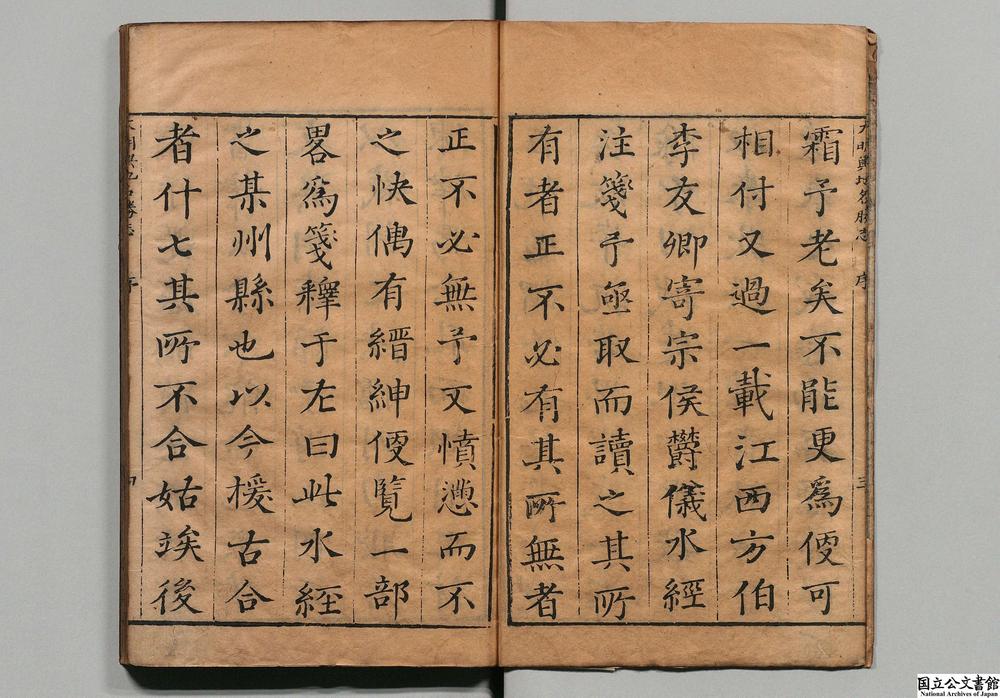 大明輿地名勝志 序 三
霜予老矣不能更爲便可
相付又過一載江西方伯
李友卿寄宗侯欝儀水經
注箋予亟取而讀之其所
有者正不必有其所無者
正不必無予又憤懑而不
之快偶有縉紳便覽一部
畧爲箋釋于左曰此水經
之某州縣也以今援古合
者什七其所不合姑竢後
大明輿地名勝志 序 四
国立公文書館
National Archives of Japan